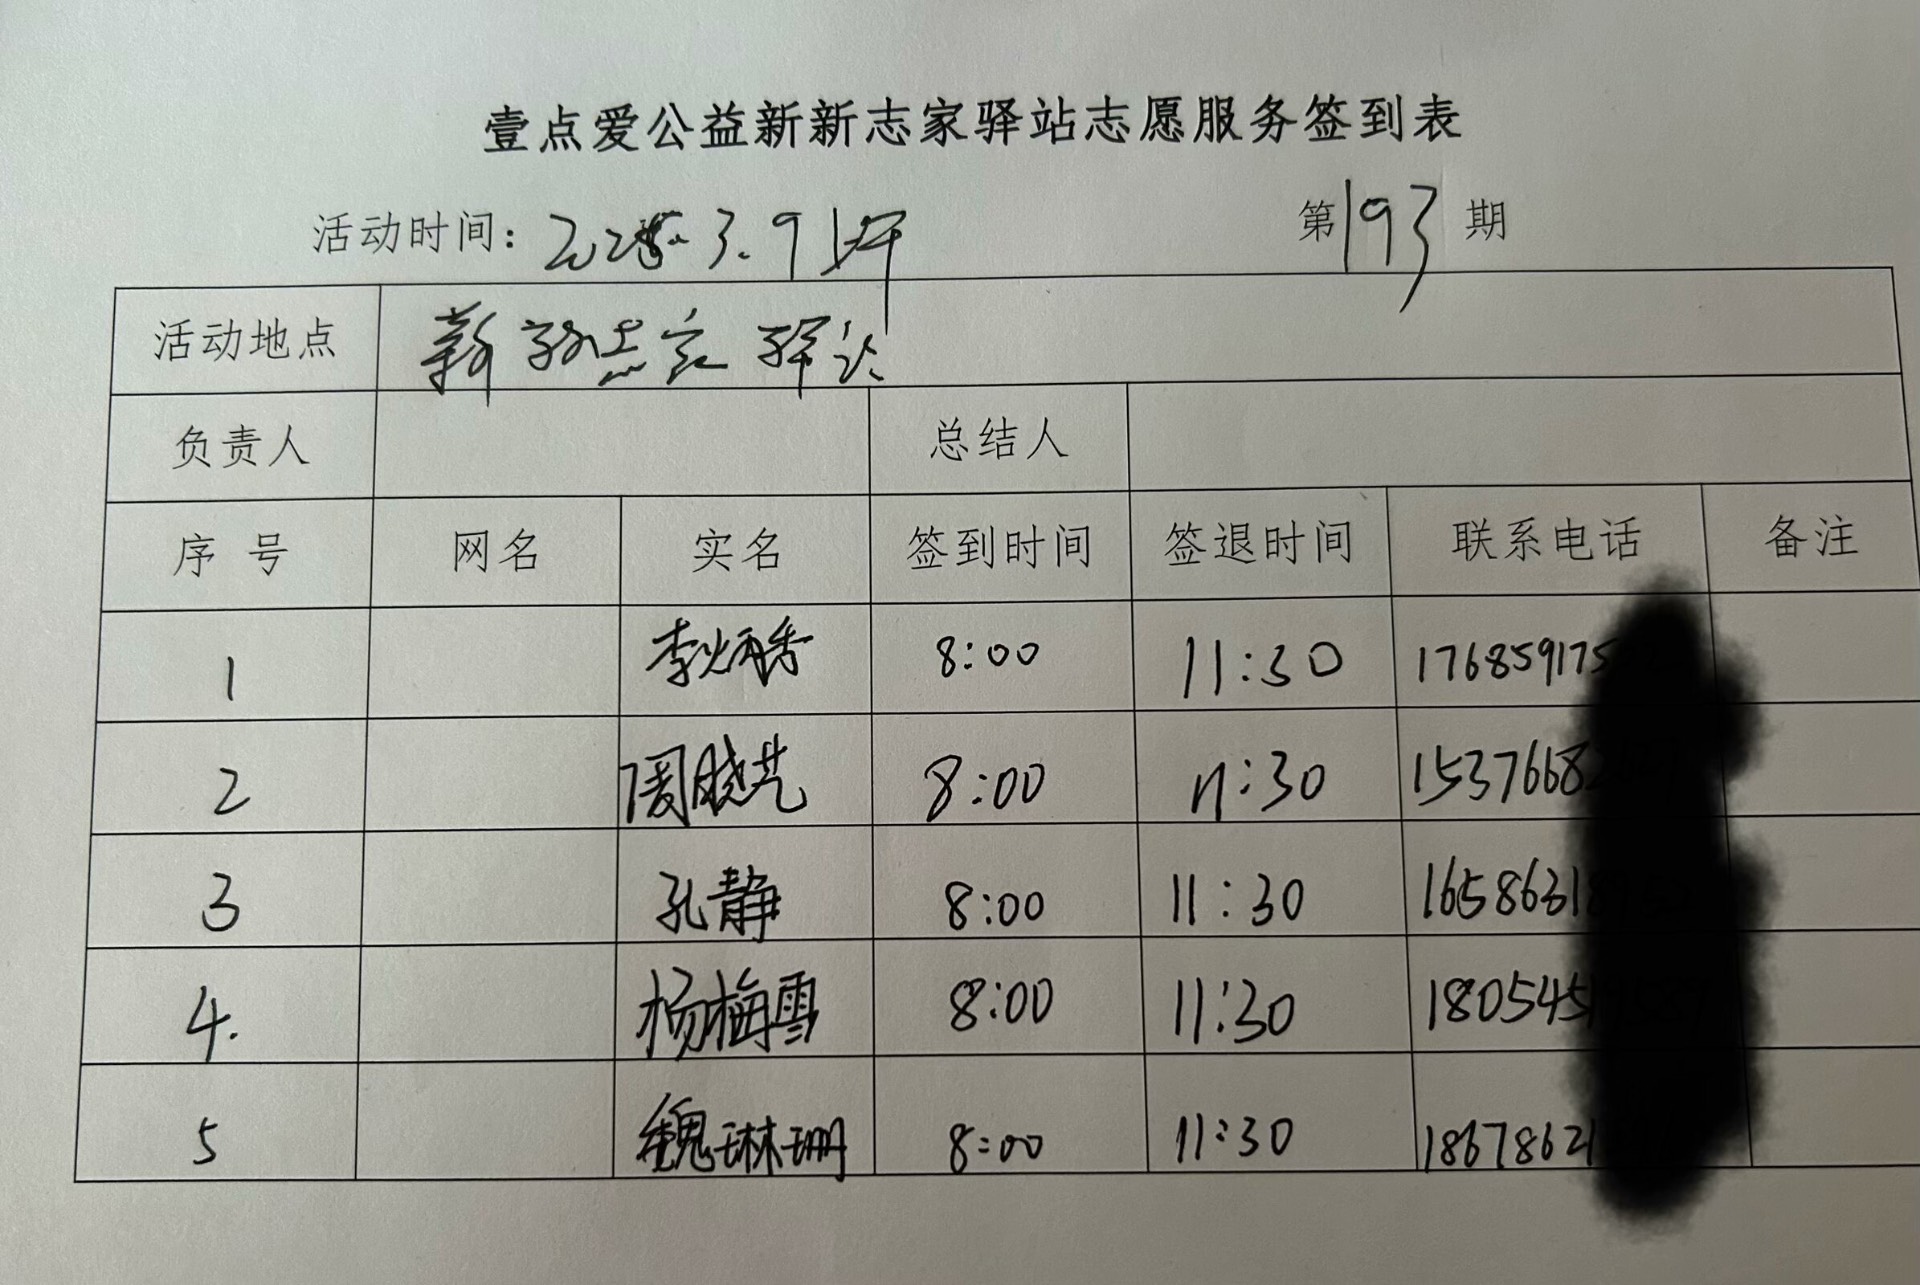 壹点爱公益新新志家驿站志愿服务签到表
活动时间: 2025.3.9上午 第193期
活动地点 新新志家驿站
负责人 总结人
序号 网名 实名 签到时间 签退时间 联系电话 备注
1 李炳香 8:00 11:30 176859175
2 周晓艺 8:00 11:30 15376682
3 孔静 8:00 11:30 16586318
4. 杨梅雪 8:00 11:30 1805451
5 魏琳珊 8:00 11:30 18678621